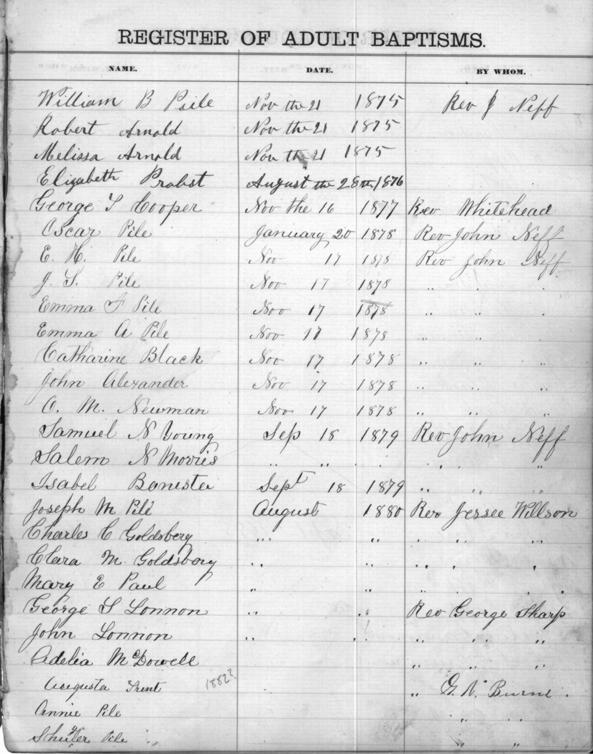 REGISTER OF ADULT BAPTISMS.
NAME. DATE. BY WHOM.
William B Pile Nov the 21 1875 Rev J Neff
Robert Arnold Nov the 21 1875
Melissa Arnold Nov the 21 1875
Elizabeth Probst August the 28th 1876
George T Cooper Nov the 16 1877 Rev Whitehead
Oscar Pile January 20 1878 Rev John Neff
E. H. Pile Nov 17 1878 Rev John Neff
J. S. Pile Nov 17 1878 " " "
Emma F Pile Nov 17 1878 " " "
Emma A Pile Nov 17 1878
Catharine Black Nov 17 1878 " " "
John Alexander Nov 17 1878 " " "
A. M. Newman Nov 17 1878 " " "
Samuel N Young Sep 18 1879 Rev John Neff
Salem N Morris " " " " " "
Isabel Banister Sept 18 1879 " " "
Joseph M Pile August 1880 Rev Jessee Willson
Charles C Goldsberg " " " " "
Clara M. Goldsborg " " " " "
Mary E Paul " " " " "
George S Lonnon " " Rev George Sharp
John Lonnon " " " " "
Adelia McDowell " " "
Augusta Trent 1882? " G. N. Burne
Annie Pile " " "
Pile " " "